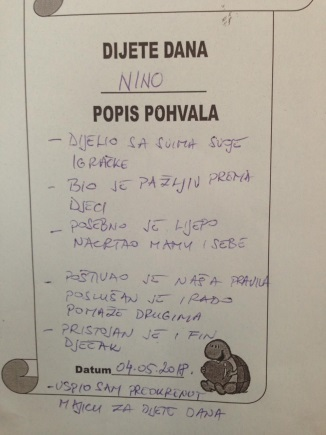 DIJETE DANA
NINO
POPIS POHVALA
- DIJELIO SA SVIMA SVOJE
IGRAČKE
- BIO JE PAŽLJIV PREMA
DJECI
- POSEBNO JE LIJEPO
NACRTAO MAMU I SEBE
- POŠTIVAO JE NAŠA PRAVILA
POSLUŠAN JE I RADO
POMAŽE DRUGIMA
- PRISTOJAN JE I FIN
DJEČAK
Datum 04.05.2018.
- USPIO SAM PREOKRENUT
MAJICU ZA DIJETE DANA